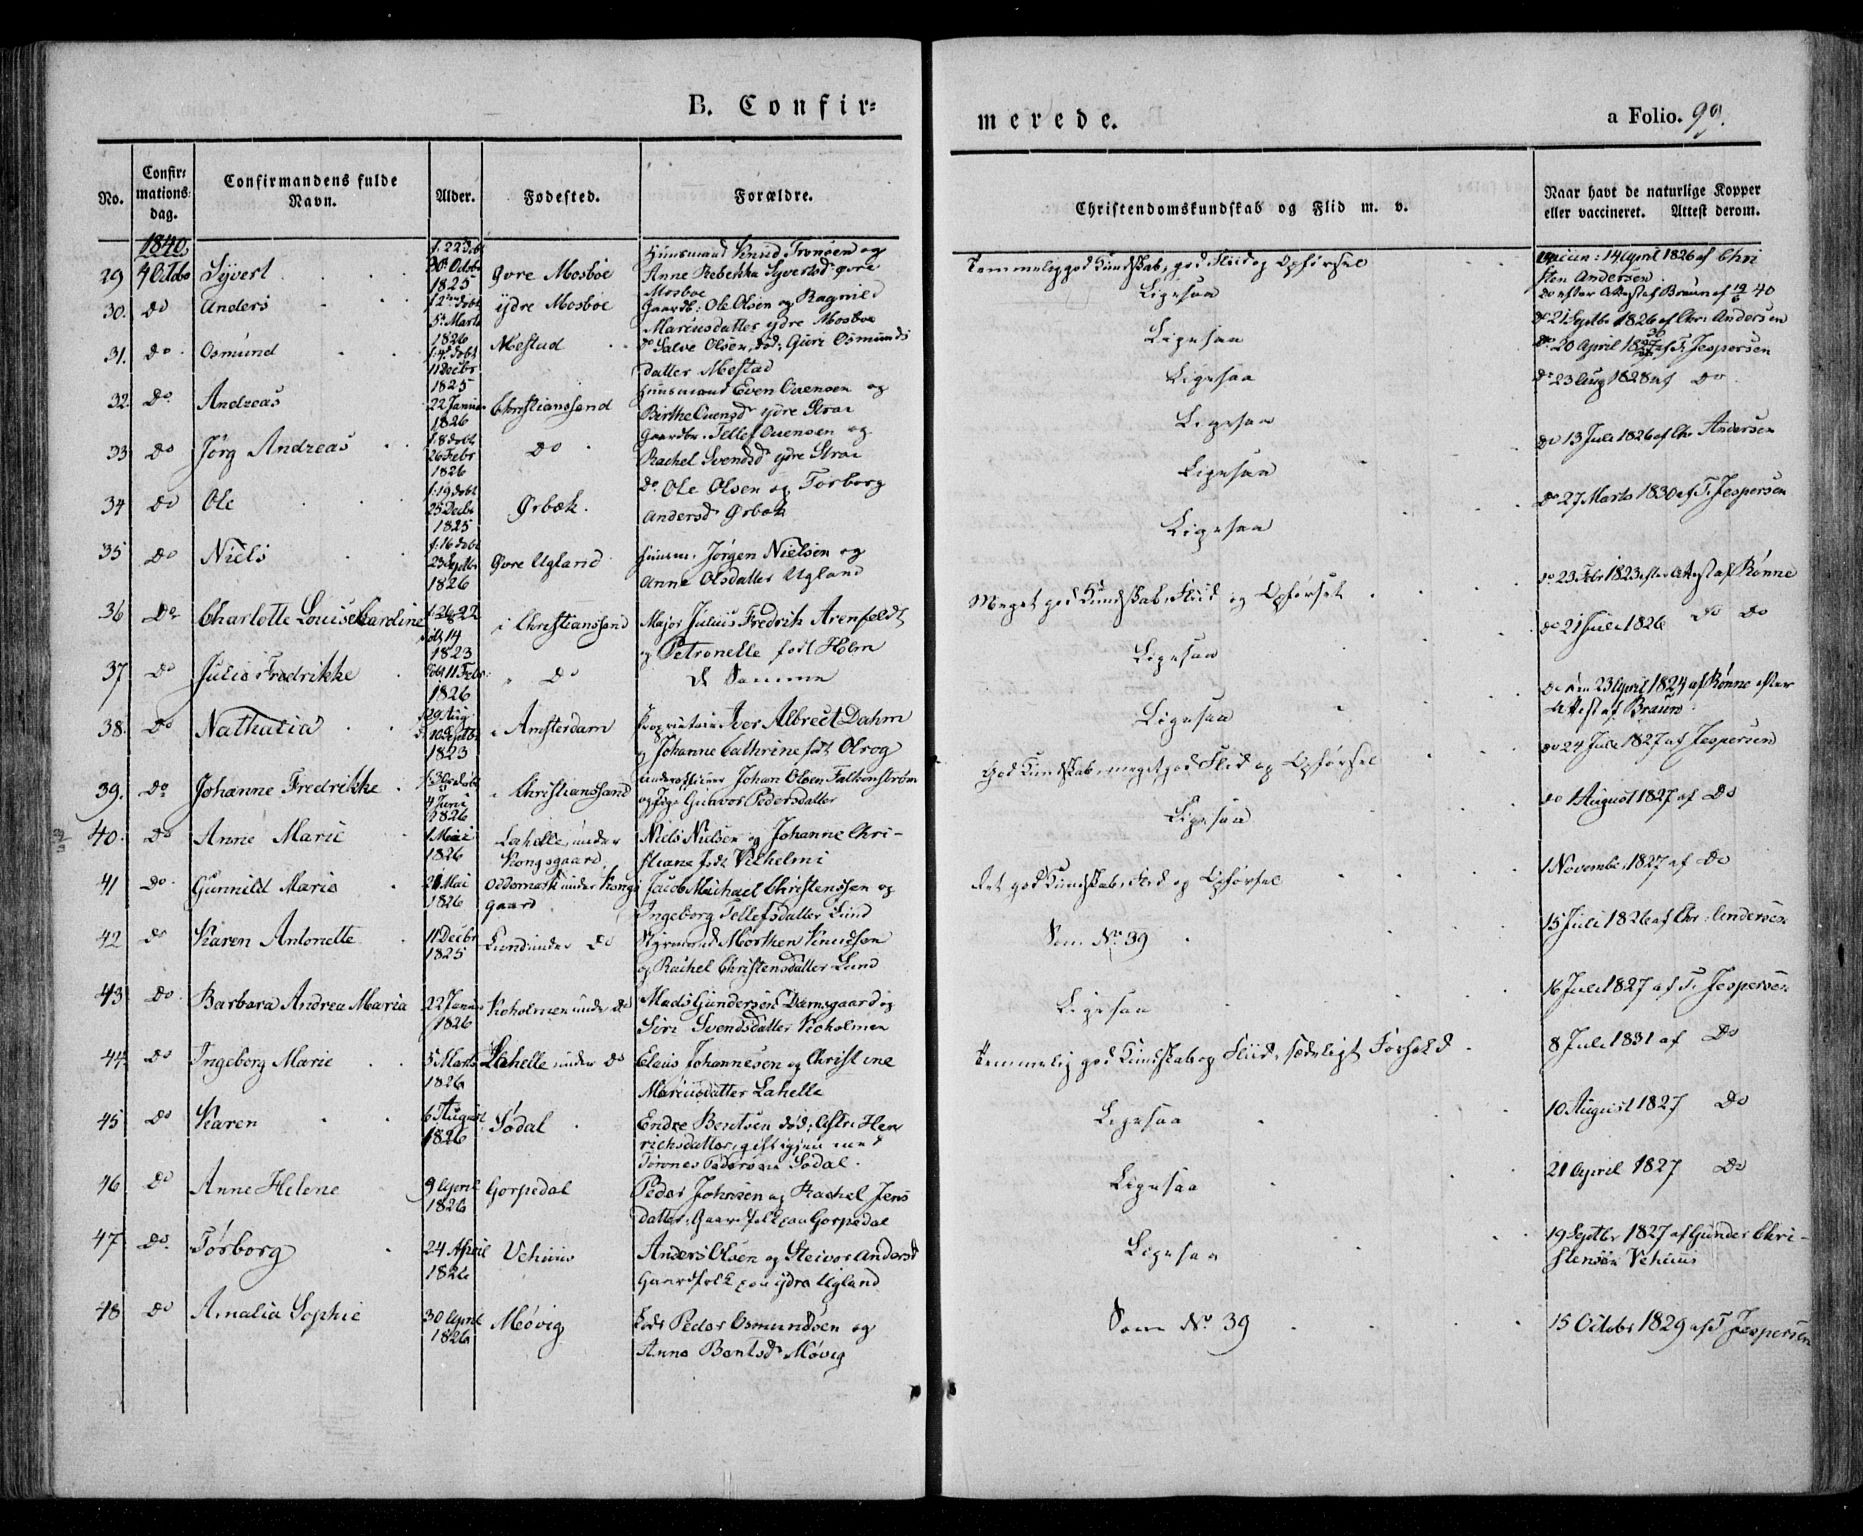 B. Confir=
merede.
a Folio. 99.
No.
Confir=
mations
dag.
Confirmandens fulde
Navn.
Alder.
Fødested.
Forældre.
Christendomskundskab og Flid m. v.
Naar havt de naturlige Kopper
eller vaccineret. Attest derom.
1840.
29 4 Octbr Syvert
30 Octbr
1825
Øvre Mosboe
Huusmand Knud Tronsen og
Anne Rebekka Syvertsd øvre
Mosboe
Temmelig god Kundskab, god Flid og Opførsel
14 April 1826 af Chri
sten Andersen
30. do Anders
5te Marts
1826
ydre Mosboe
Gaardb: Ole Olsen og Ragnild
Mariusdatter ydre Mosboe
Ligesaa
do efter Attest af Braun af 19/6 40
31. do Osmund
11 Decbr
1825
Mestad
do Salve Olsen, død, Guri Osmunds
datter Mestad
Ligesaa
do 21 Septbr 1826 af Chr. Andersen
32. do Andreas
22 Januar
1826
Christianssand
Huusmand Even Evensen og
Birthe Evensd ydre Strai
Ligesaa
do 20 April 1827 af T. Jespersen
33 do Jørg Andreas
26 Febr
1826
do
Gaardbr. Tellef Evensen og
Rachel Svendsd ydre Strai
Ligesaa
do 23 Aug 1828 af do
34 do Ole
25 Decbr
1825
Ørbæk
do Ole Olsen og Torborg
Andersd Ørbæk
Ligesaa
do 13 Juli 1826 af Chr Andersen
35 do Niels
23 Septbr
1826
Øvre Ugland
Huusm. Jørgen Nielsen og
Anne Olsdatter Ugland
Ligesaa
do 27 Marts 1830 af T. Jespersen
36 do Charlotte Louise Cardine
1823
i Christianssand
Major Julius Fredrik Arenfeldt
og Petronelle født Holm
Meget god Kundskab, Flid og Opførsel
do 23 Febr 1823 efter Attest af Rønne
37 do Julie Fredrikke
11 Febr
1826
" do
de Samme
Ligesaa
do 21 Juli 1826 do do
38. do Nathalia
29 Aug
1823
i Amsterdam
Proprietair Iver Albrect Dahm
og Johanne Cathrine født Olrog
Ligesaa
do den 23 April 1824 af Rønne efter
Attest af Braun
39. do Johanne Fredrikke
4 Juni
1826
i Christianssand
Underofficier Johan Olsen Falkenstrøm
og Pige Gunvor Pedersdatter
God Kundskab, meget god Flid og Opførsel
do 24 Juli 1827 af Jespersen
40. do Anne Marie
1 Mai
1826
Lahelle under
Kongsgaard
Niels Nielsen og Johanne Chri-
stiane født Vilhelmi
Ligesaa
do 1 August 1827 af do
41 do Gunnild Marie
21 Mai
1826
Oddernæs under Kongs
gaard
Jacob Michael Christenssen og
Ingeborg Tellefsdatter Lund
Ret god Kundskab, Flid og Opførsel
1 November 1827 af do
42 do Karen Antonette
11 Decbr
1825
Lund under do
Styrmand Morthen Knudsen
og Rachel Christensdatter Lund
Som No 39
15 Juli 1826 af Chr. Andersen
43 do Barbara Andrea Maria
22 Januar
1826
Keholmen under do
Mads Gundersen Damsgaard og
Siri Svendsdatter Keholmen
Ligesaa
16 Juli 1827 af T. Jespersen
44 do Ingeborg Marie
5 Marts
1826
Lahelle under do
Claus Johannesen og Christine
Mariusdatter Lahelle
Temmelig god Kundskab og Flid, sædeligt Forhold
8 Juli 1831 af do
45 do Karen
6 August
1826
Sødal
Endre Bentsen død, Astri Hen
richsdatter, gift igjen med
Tønnes Pedersen Sødal.
Ligesaa
10 August 1827 do
46 do Anne Helene
9 April
1826
Gorpedal
Peder Johnsen og Rachel Jens
datter, Gaardfolk paa Gorpedal
Ligesaa
21 April 1827 do
47 do Torborg
24 April
1826
Vehuus
Anders Olsen og Steivor Andersd
Gaardfolk paa ydre Ugland
Ligesaa
19 Septbr 1827 af Gunder Chri-
stensen Vehuus
48 do Amalia Sophie
30 April
1826
Møvig
Lods Peder Osmundsen og
Anne Bentsd Møvig
Som No 39
15 October 1829 af T. Jespersen